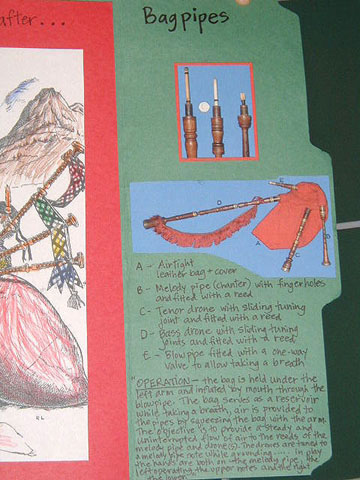 after...
Bagpipes
A - Airtight
leather bag + cover
B - Melody pipe (chanter) with fingerholes
and fitted with a reed
C - Tenor drone with sliding tuning
joint and fitted with a reed
D - Bass drone with sliding tuning
joints and fitted with a reed
E - Blowpipe fitted with a one-way
valve to allow taking a breath
OPERATION - the bag is held under the
left arm and inflated by mouth through the
blowpipe. The bag serves as a reservoir
while taking a breath, air is provided to
the pipes by squeezing the bag with the arm.
The objective is to provide a steady and
uninterrupted flow of air to the reeds of the
melody pipe and drone(s). The drones are tuned to
a melody pipe note while in play
the hands are both on the melody pipe, the
left operating the upper notes and the right
E
D
B
A
C